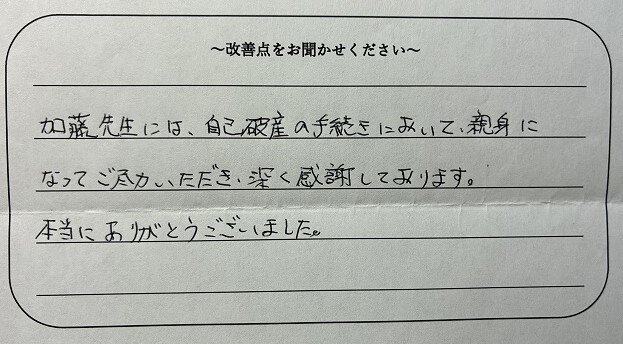 ～改善点をお聞かせください～
加藤先生には、自己破産の手続きにおいて、親身に
なってご尽力いただき、深く感謝しております。
本当にありがとうございました。